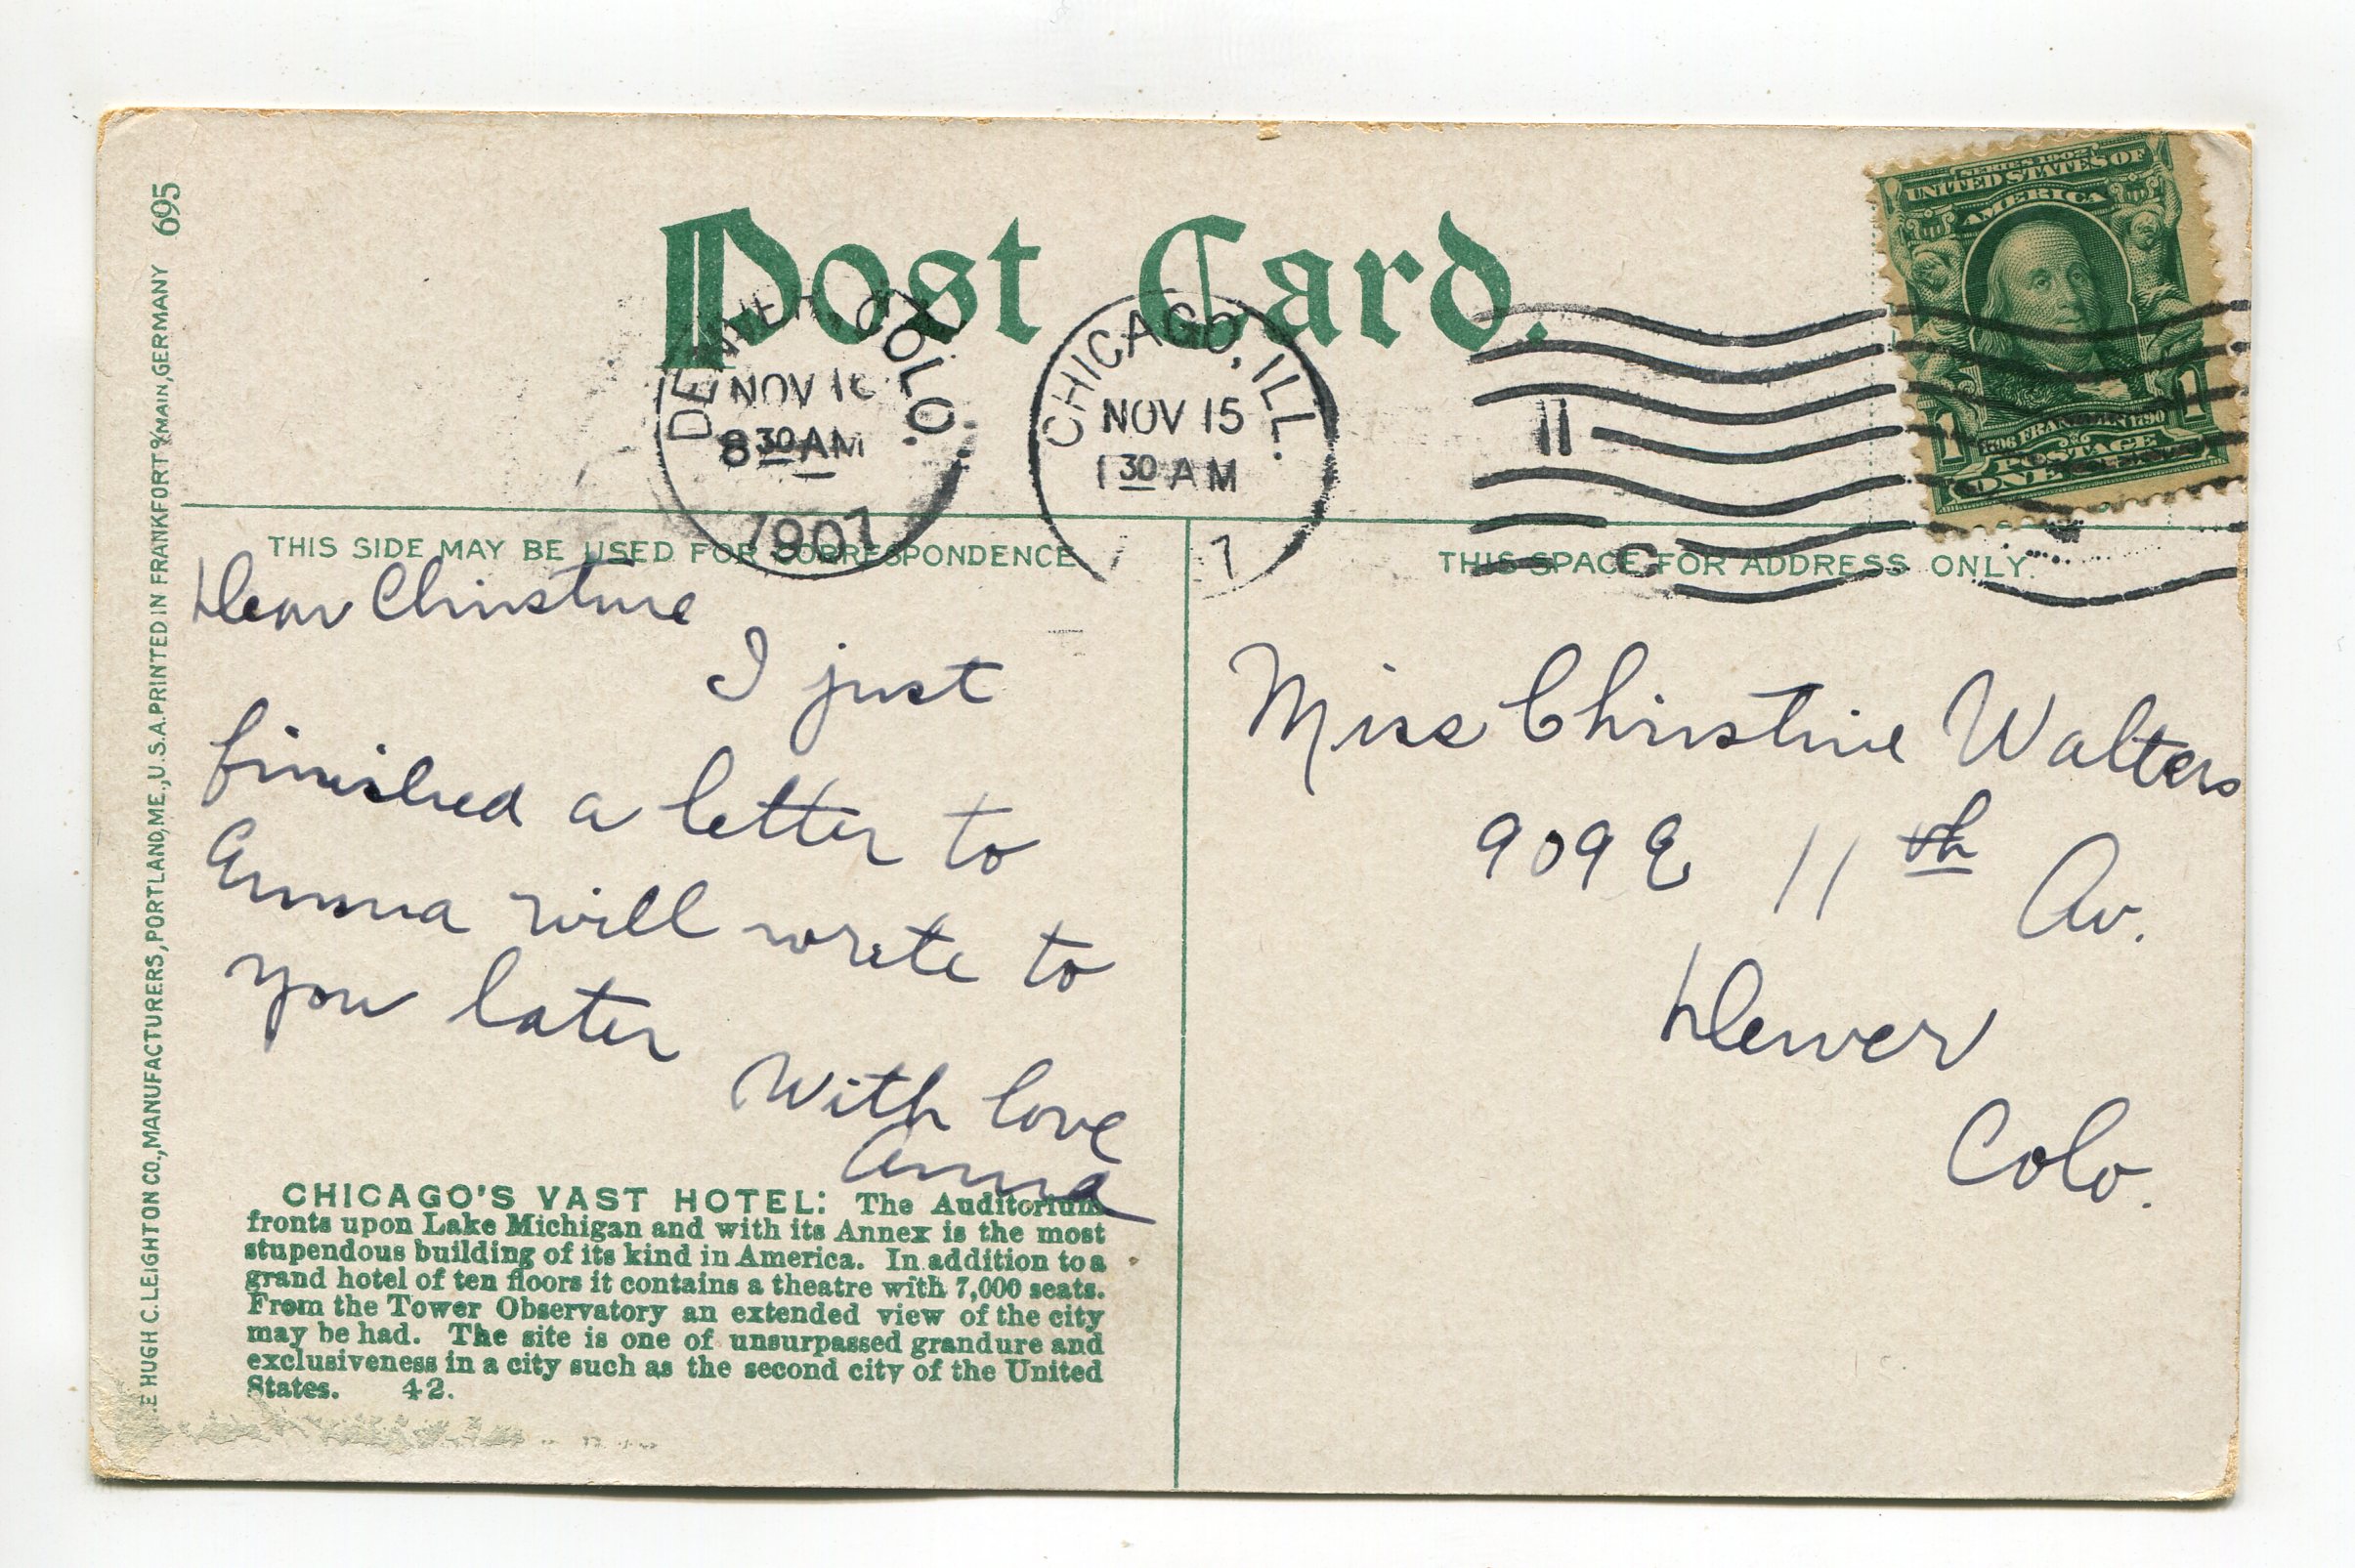 695
E HUGH C. LEIGHTON CO., MANUFACTURERS, PORTLAND, ME., U.S.A. PRINTED IN FRANKFORT o/MAIN, GERMANY
Post Card.
SERIES 1902
UNITED STATES OF
AMERICA
1 1
1706 FRANKLIN 1790
POSTAGE
ONE
DENVER, COLO.
NOV 16
8 30 AM
1907
CHICAGO, ILL.
NOV 15
1 30 AM
7
11
C
THIS SIDE MAY BE USED FOR CORRESPONDENCE
Dear Christine
I just
finished a letter to
Emma will write to
you later
With love
Anna
THIS SPACE FOR ADDRESS ONLY.
Miss Christine Walters
909 E 11th Av.
Denver
Colo.
CHICAGO'S VAST HOTEL: The Auditorium
fronts upon Lake Michigan and with its Annex is the most
stupendous building of its kind in America. In addition to a
grand hotel of ten floors it contains a theatre with 7,000 seats.
From the Tower Observatory an extended view of the city
may be had. The site is one of unsurpassed grandure and
exclusiveness in a city such as the second city of the United
States. 42.